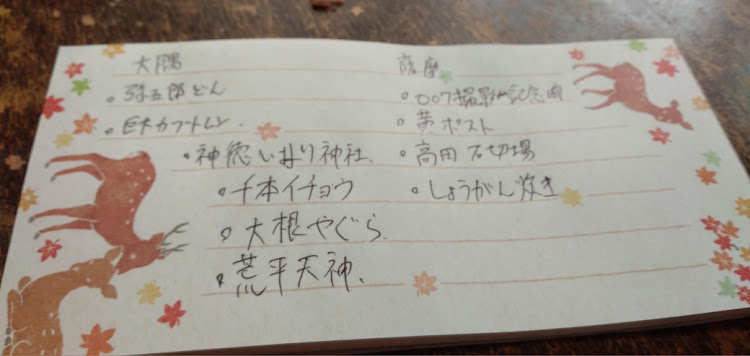 大隅
・弥五郎どん
・巨木カブトムシ
・神徳いなり神社、
・千本イチョウ
・大根やぐら、
・荒平天神、
薩摩
・007撮影 記念
・ポスト
・高田石切場
・しょうがん炊き